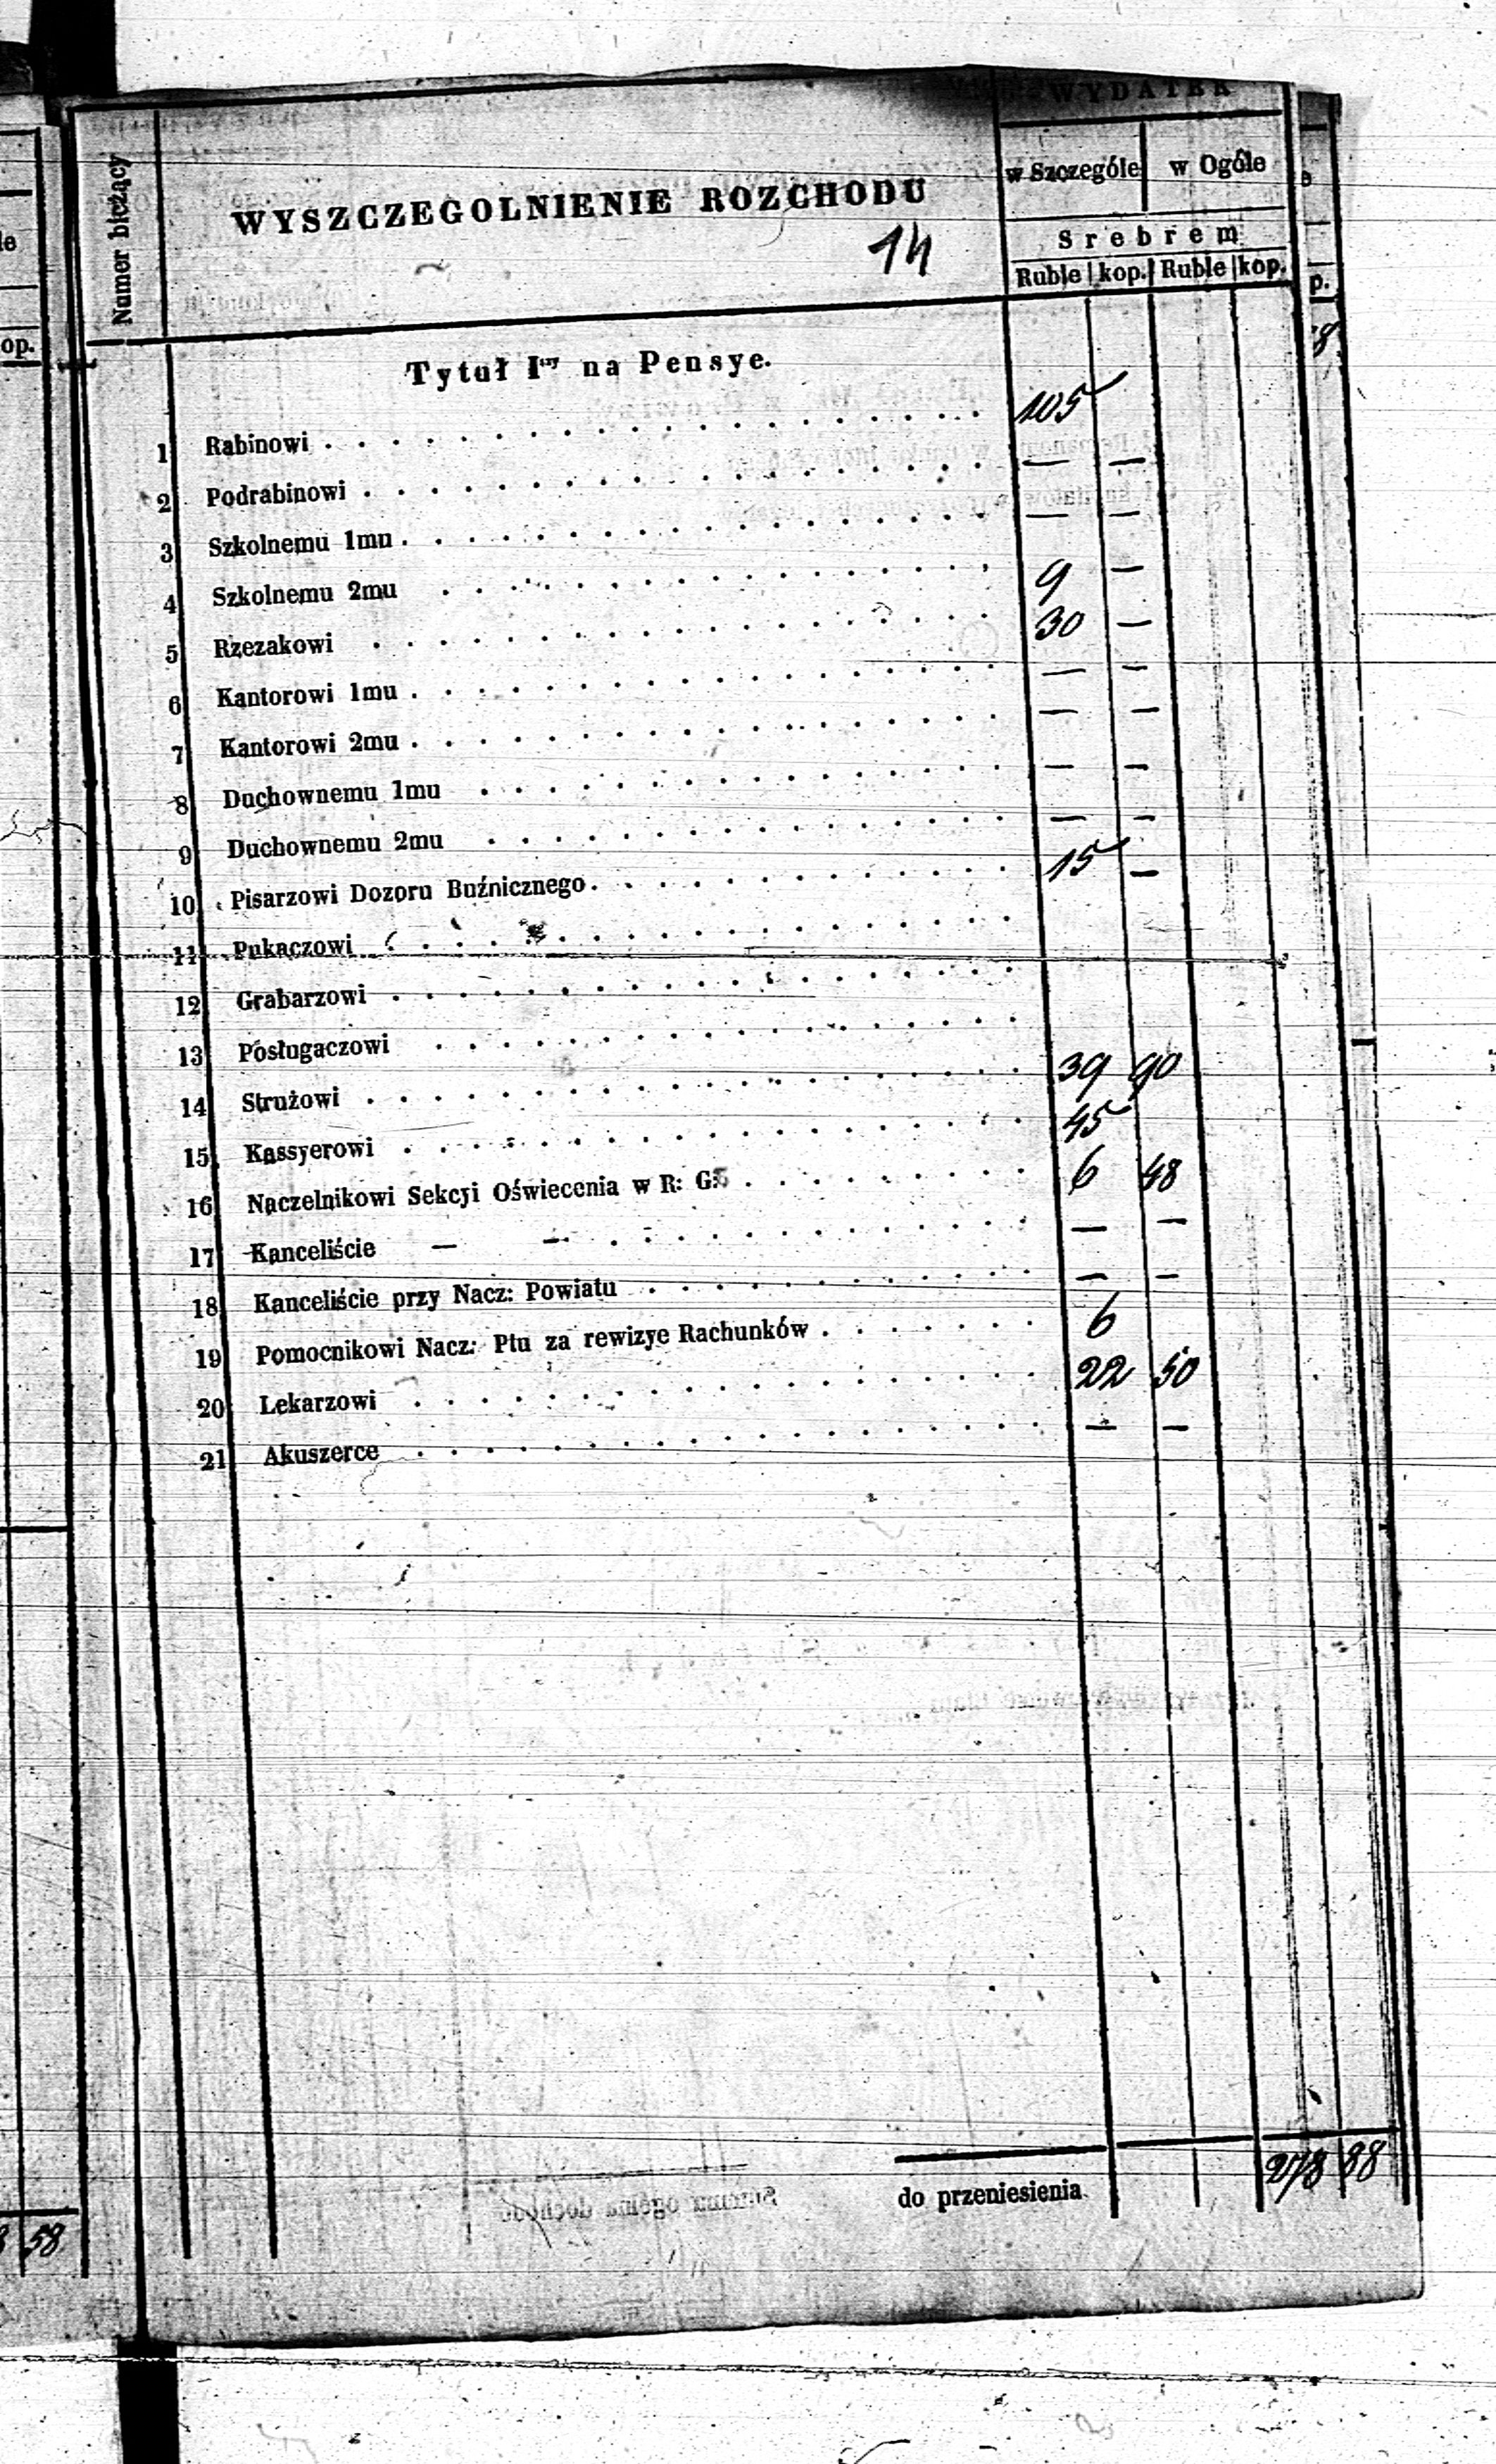 WYDATEK
Numer bieżący
WYSZCZEGOLNIENIE ROZCHODU
w Szczególe w Ogóle
14
Srebrem
Ruble kop. Ruble kop.
Tytuł I na Pensye.
1 Rabinowi 105
2 Podrabinowi — —
3 Szkolnemu 1mu — —
4 Szkolnemu 2mu 9 —
5 Rzezakowi 30 —
6 Kantorowi 1mu — —
7 Kantorowi 2mu — —
8 Duchownemu 1mu — —
9 Duchownemu 2mu — —
10 Pisarzowi Dozoru Buźnicznego 15 —
11 Pukaczowi
12 Grabarzowi
13 Posługaczowi
14 Strużowi 39 90
15 Kassyerowi 45
16 Naczelnikowi Sekcji Oświecenia w R: G: 6 48
17 Kanceliście — — — —
18 Kanceliście przy Nacz: Powiatu — —
19 Pomocnikowi Nacz: Ptu za rewizye Rachunków 6
20 Lekarzowi 22 50
21 Akuszerce — —
do przeniesienia 278 88
58